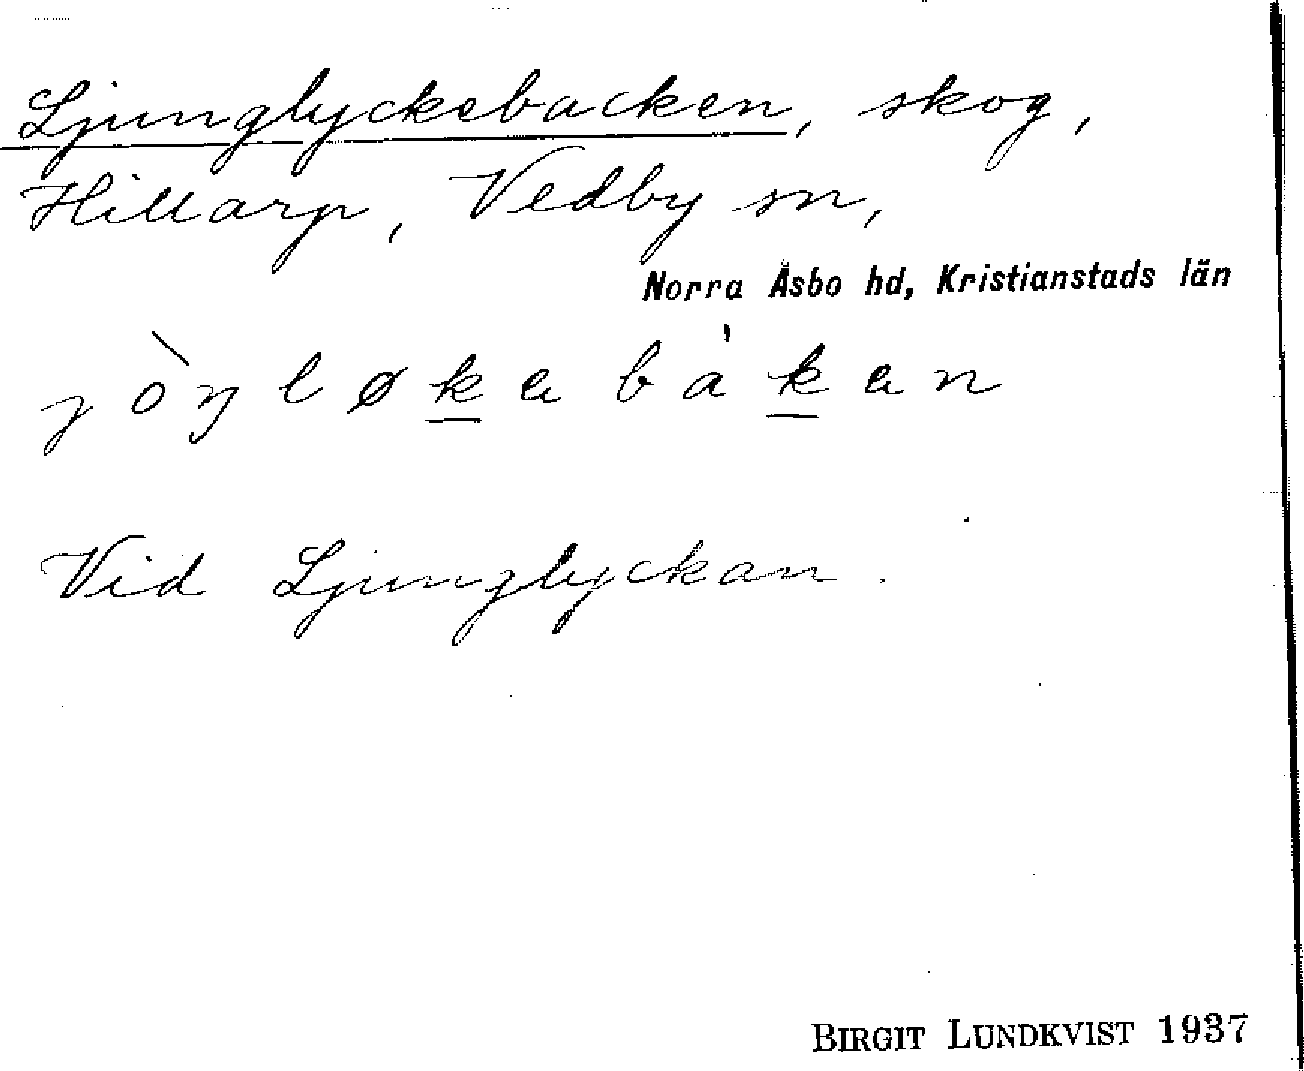 Ljunglyckebacken, skog,
Hillarp, Vedby sn,
Norra Åsbo hd, Kristianstads län
jòŋløkebåken
Vid Ljunglyckan.
BIRGIT LUNDKVIST 1937